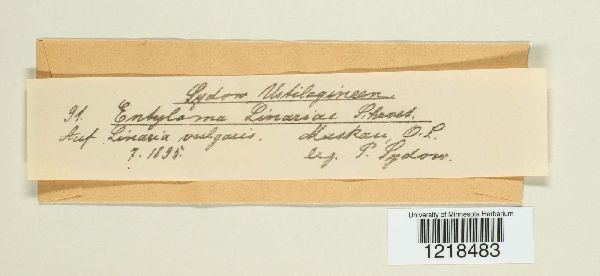 Sydow Ustilagineen
91. Entyloma Linariae Schroet.
Auf Linaria vulgaris. Muskau, O.L.
7. 1895. leg. P. Sydow.
University of Minnesota Herbarium
1218483